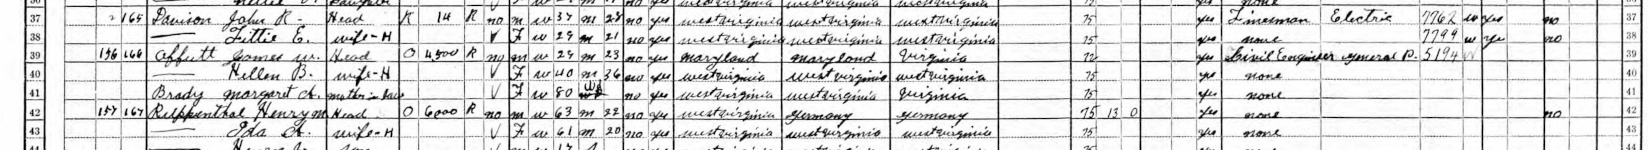 37 165 Davison John R - Head R 14 R no m w 37 m 28 no yes westvirginia westvirginia westvirginia 75 yes Lineman Electric 7762 w yes no 37
38 —— Tittie E. wife-H V F w 29 m 21 no yes westvirginia westvirginia westvirginia 75 yes none 7799 w ye no 38
39 156 166 Offutt James W. Head O 4500 R no m w 29 m 23 no yes maryland maryland Virginia 72 yes Civil Engineer general P. 5194 W 39
40 —— Hellen B. wife-H V F w 40 m 36 no yes westvirginia westvirginia westvirginia 75 yes none 40
41 Brady margaret A. mother in law V F w 80 Wd no yes westvirginia westvirginia Virginia 75 yes none 41
42 157 167 Henry m Head O 6000 R no m w 63 m 22 no yes westvirginia Germany germany 75 13 0 yes none no 42
43 —— Ida A. wife-H V F w 61 m 20 no yes westvirginia westvirginia westvirginia 75 yes none 43